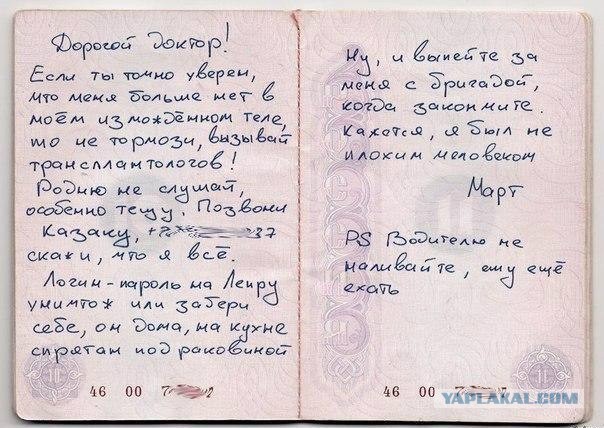 Дорогой доктор!
Если ты точно уверен,
что меня больше нет в
моём измождённом теле,
то не тормози, вызывай
трансплантологов!
Родню не слушай,
особенно тёщу. Позвони
Казаку, +7 37
скажи, что я всё.
Логин-пароль на Лепру
уничтож или забери
себе, он дома, на кухне
спрятан под раковиной
46 00 7
Ну, и выпейте за
меня с бригадой,
когда закончите.
Кажется, я был не
плохим человеком
Март
PS Водителю не
наливайте, ему ещё
ехать
46 00 7
YAPLAKAL.COM